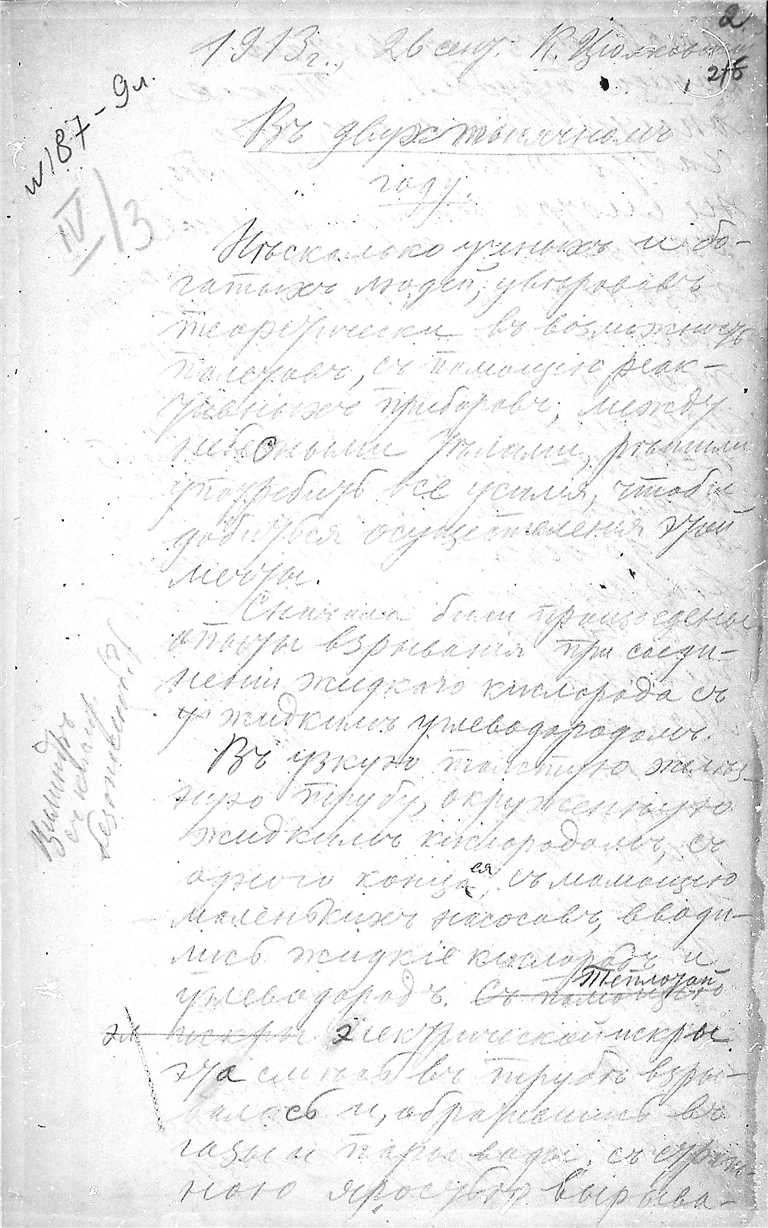 2
1913 г., 26 сент. К. Циолковский
216
№187 – 9 л.
IV/3
Въ двухтысячномъ
году.
Нѣсколько ученыхъ и бо-
гатыхъ людей, увѣровавъ
теоретически въ возможность
полетовъ, съ помощію реак-
тивныхъ приборовъ, между
небесными тѣлами, рѣшили
употребить все усилія, чтобы
добиться осуществленія этой
мечты.
Сначала были произведены
опыты взрыванія при соеди-
неніи жидкаго кислорода съ
жидкимъ углеводородомъ.
Въ узкую толстую желѣз-
ную трубу, окруженную
жидкимъ кислородомъ, съ
одного конца ея, съ помощію
маленькихъ насосовъ, вводи-
лись жидкіе кислородъ и
углеводородъ. Съ помощью
Теплотой
эл искры электрической искры
эта смѣсь въ трубѣ взры-
валась и, обратившись въ
газы и пары воды, съ страш-
ною яростью вырыва-